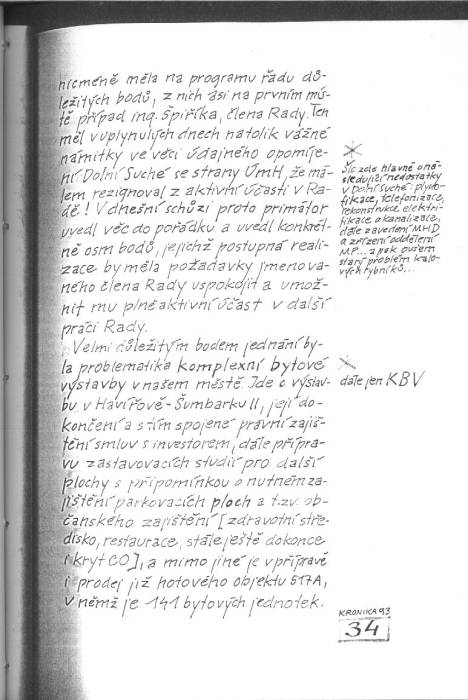 nicméně měla na programu řadu dů-
ležitých bodů, z nich asi na prvním mís-
tě případ ing. Špiříka, člena Rady. Ten
měl v uplynulých dnech natolik vážné
námitky ve věci údajného opomíje-
ní Dolní Suché se strany ÚmH, že má-
lem rezignoval z aktivní účasti v Ra-
dě! V dnešní schůzi proto primátor
uvedl věc do pořádku a uvedl konkrét-
ně osm bodů, jejichž postupná reali-
zace by měla požadavky jmenova-
ného člena Rady uspokojit a umož-
nit mu plně aktivní účast v další
práci Rady.
Velmi důležitým bodem jednání by-
la problematika komplexní bytové
výstavby v našem městě. Jde o výstav-
bu v Havířově-Šumbarku II, její do-
končení a s tím spojené právní zajiš-
tění smluv s investorem, dále přípra-
vu zastavovacích studií pro další
plochy s připomínkou o nutném za-
jištění parkovacích ploch a t.zv. ob-
čanského zajištění [zdravotní stře-
disko, restaurace, stále ještě dokonce
i kryt CO], a mimo jiné je v přípravě
i prodej již hotového objektu 517A,
v němž je 141 bytových jednotek.
Šlo zde hlavně o ná-
sledující nedostatky
v Dolní Suché: plyno-
fikace, telefonizace,
rekonstrukce elektri-
fikace a kanalizace,
dále zavedení MHD
a zřízení oddělení
MP... a pak ovšem
starý problém kalo-
vých rybníků...
dále jen KBV
KRONIKA 93
34